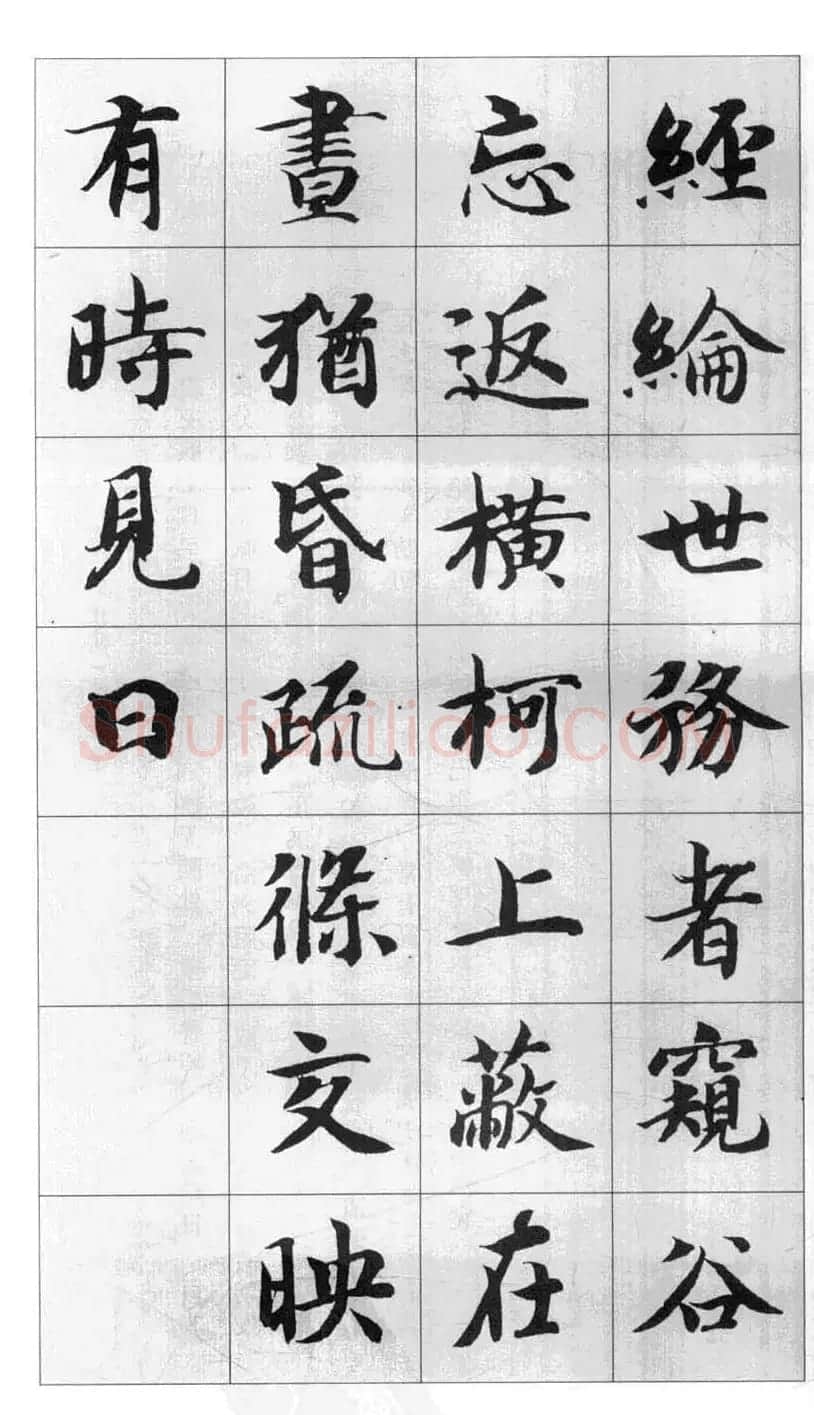 經綸世務者窺谷
忘返橫柯上蔽在
晝猶昏疏條交映
有時見日
Shufaziliao.COM